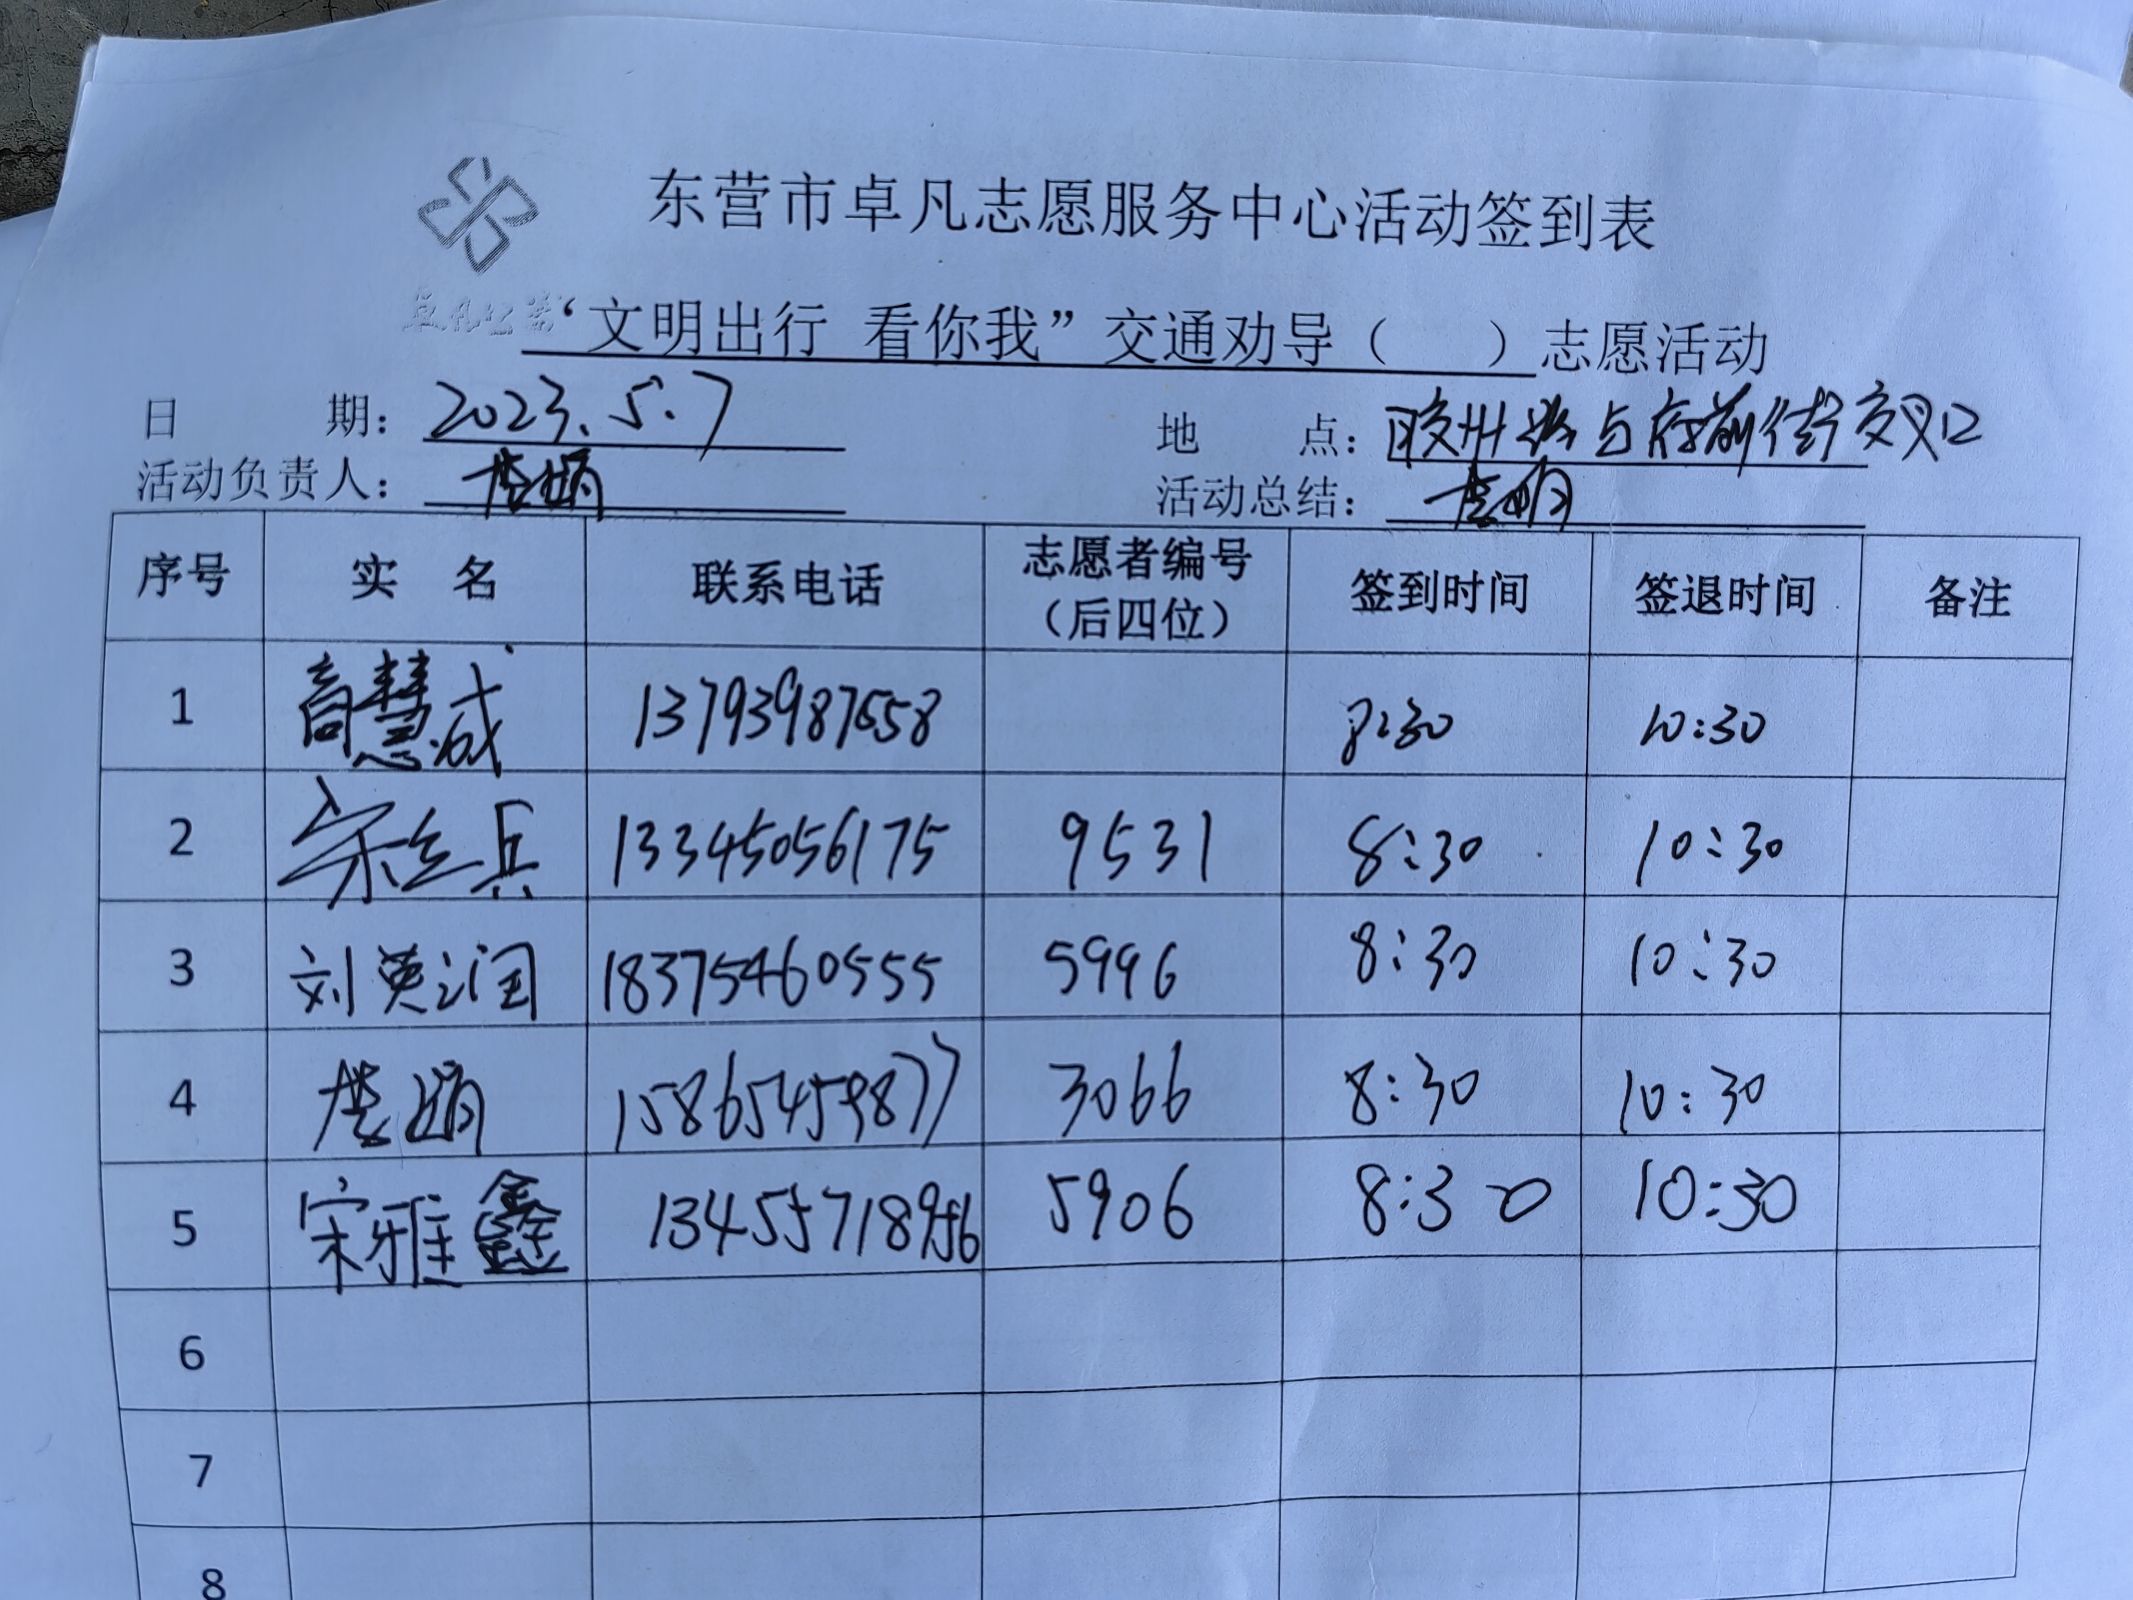 东营市卓凡志愿服务中心活动签到表
“文明出行 看你我”交通劝导（ ）志愿活动
日 期：2023.5.7 地 点：胶州路与府前街交叉口
活动负责人： 活动总结：
序号 实 名 联系电话 志愿者编号（后四位） 签到时间 签退时间 备注
1 高慧成 13793987658 8:30 10:30
2 宋立兵 13345056175 9531 8:30 10:30
3 刘英润 18375460555 5996 8:30 10:30
4 楚娟 15865459877 3066 8:30 10:30
5 宋雅鑫 13455718956 5906 8:30 10:30
6
7
8